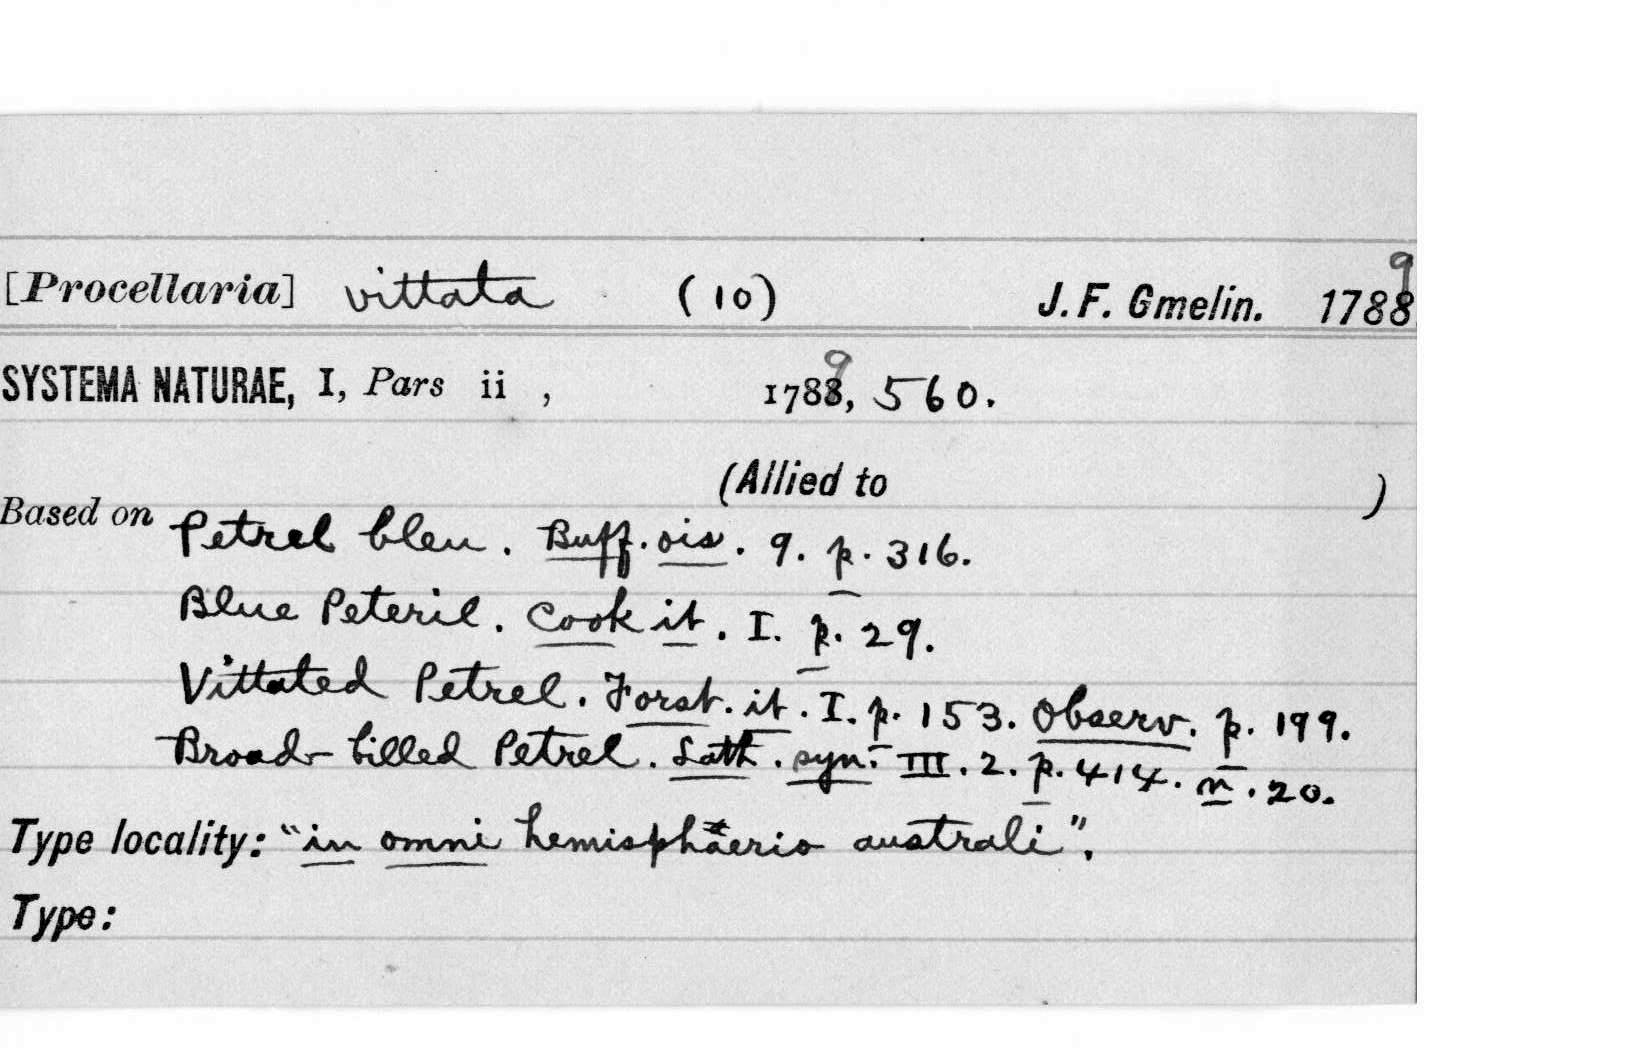 [Procellaria] vittata (10) J. F. Gmelin. 17889
SYSTEMA NATURAE, I, Pars ii , 17889, 560.
(Allied to )
Based on Petrel bleu. Buff. ois. 9. p. 316.
Blue Peteril. Cook it. I. p. 29.
Vittated Petrel. Forst. it. I. p. 153. Observ. p. 199.
Broad-billed Petrel. Lath. syn. III. 2. p. 414. n. 20.
Type locality: "in omni hemisphaerio australi".
Type: